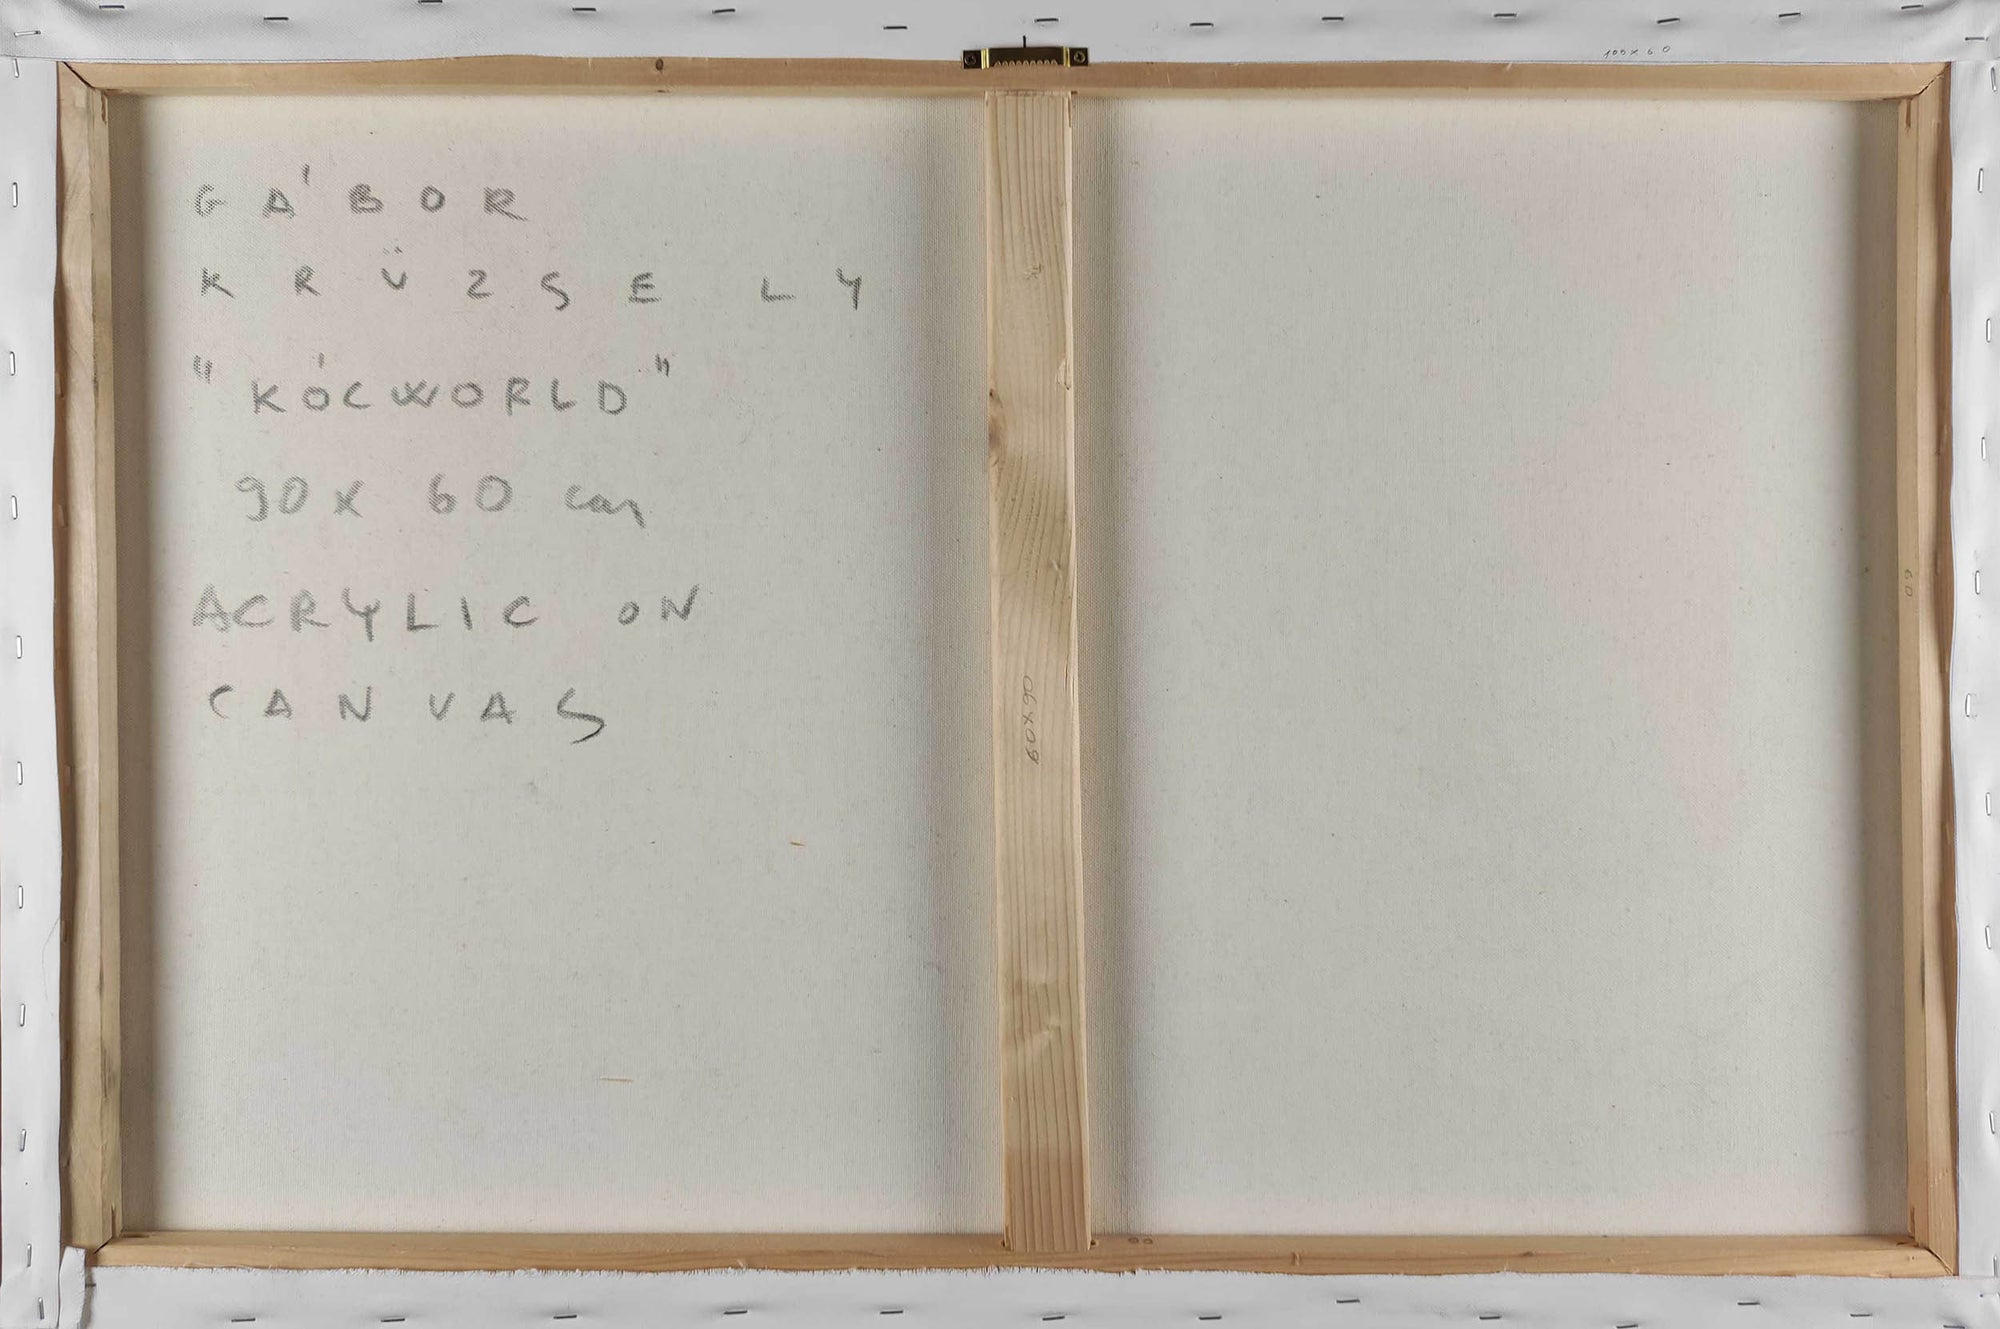 GÁBOR
KRÜZSELY
"KÓCWORLD"
90 X 60 cm
ACRYLIC ON
CANVAS
100 X 60
60X90
60